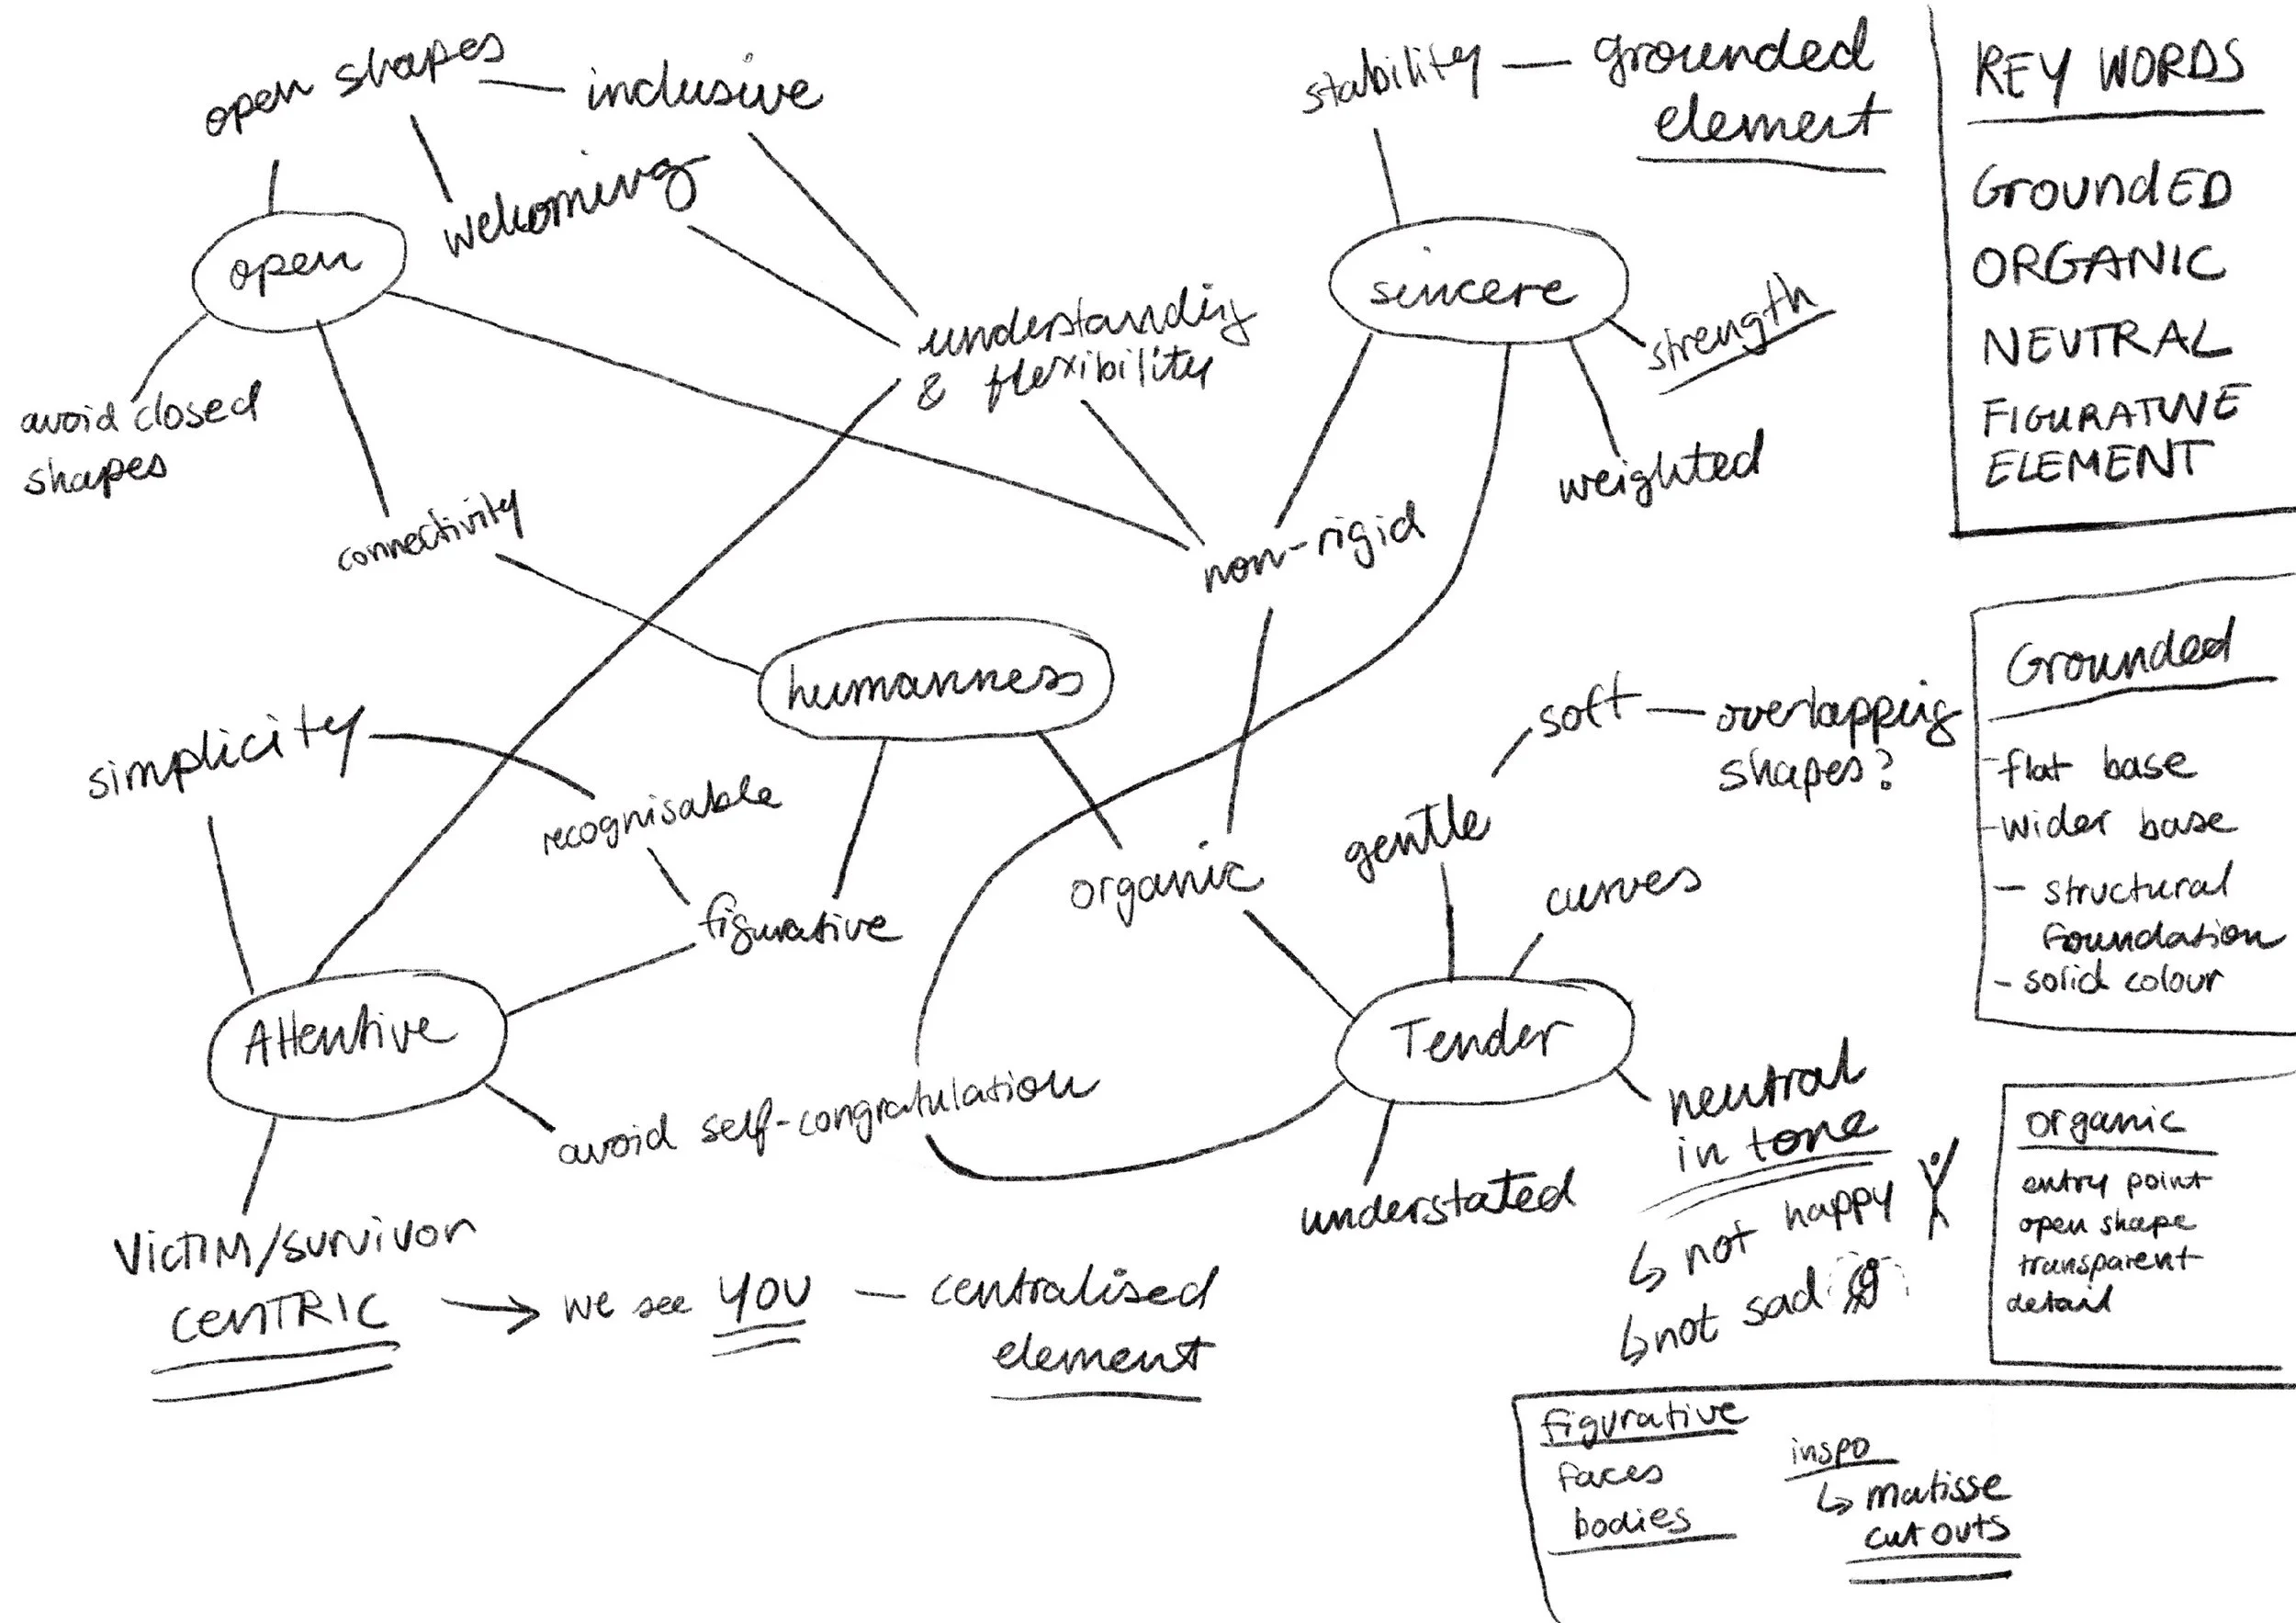 open shapes
inclusive
welcoming
open
avoid closed
shapes
connectivity
understanding
& flexibility
stability
grounded
element
sincere
strength
weighted
non-rigid
humanness
simplicity
recognisable
figurative
organic
Attentive
avoid self-congratulation
VICTIM/survivor
CENTRIC
we see YOU
centralised
element
soft
overlapping
shapes?
gentle
curves
Tender
neutral
in tone
not happy
not sad
understated
KEY WORDS
GroundED
ORGANIC
NEUTRAL
FIGURATIVE
ELEMENT
Grounded
- flat base
- wider base
- structural
foundation
- solid colour
organic
entry point
open shape
transparent
detail
figurative
faces
bodies
inspo
matisse
cut outs